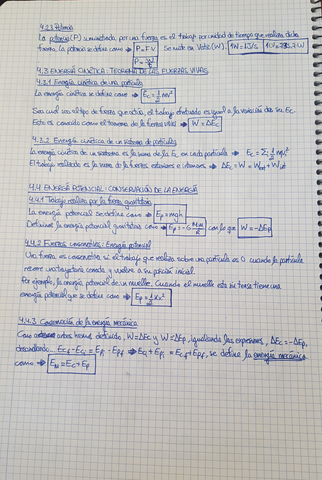 4.2.3 Potencia
La potencia (P) suministrada, por una fuerza es el trabajo por unidad de tiempo que realiza dicha
fuerza. La potencia se define como → P = F·V Se mide en Vatio (W). 1W = 1J/s
P = W/t
4.3 ENERGÍA CINÉTICA: TEOREMA DE LAS FUERZAS VIVAS
4.3.1 Energía cinética de una partícula
La energía cinética se define como → Ec = 1/2 mv²
Sea cual sea el tipo de fuerza que actúa, el trabajo efectuado es igual a la variación de su Ec
Esto es conocido como el teorema de las fuerzas vivas → W = ΔEc
4.3.2 Energía cinética de un sistema de partículas
La energía cinética de un sistema es la suma de la Ec en cada partícula → Ec = Σi 1/2 mivi²
El trabajo realizado es la suma de las fuerzas exteriores e interiores → ΔEc = W = Wext + Wint
4.4 ENERGÍA POTENCIAL: CONSERVACIÓN DE LA ENERGÍA
4.4.1 Trabajo realizado por la fuerza gravitatoria
La energía potencial se define como → Ep = mgh
la energía potencial gravitatoria como → Ep = -G Mm/R con lo que W = -ΔEp
4.4.2 Fuerzas conservativas: Energía potencial
Una fuerza es conservativa si el trabajo que realiza sobre una partícula es 0 cuando la partícula
recorre una trayectoria cerrada y vuelve a su posición inicial.
Por ejemplo, la energía potencial de un muelle. Cuando el muelle está en tensión tiene una
energía potencial que se define como → Ep = 1/2 Kx²
4.4.3 Conservación de la energía mecánica
Como antes hemos definido, W = ΔEc y W = -ΔEp, igualando las expresiones, ΔEc = -ΔEp,
desarrollando... Ecf - Eci = Epi - Epf → Eci + Epi = Ecf + Epf, se define la energía mecánica
como → EM = Ec + Ep